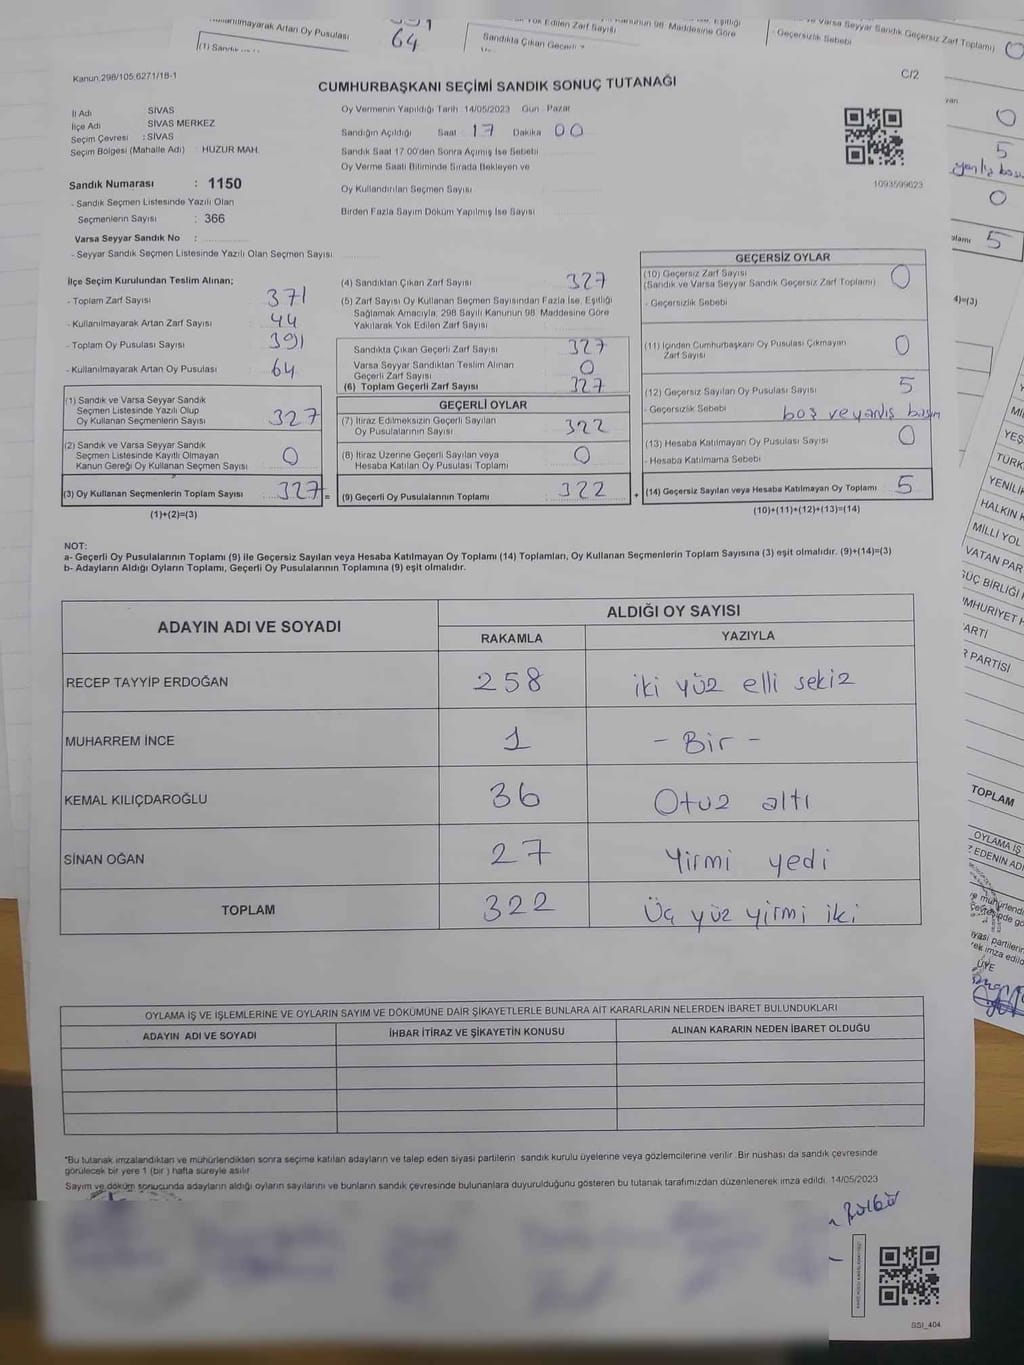 Kullanılmayarak Artan Oy Pusulası 64
Yok Edilen Zarf Sayısı
Maddesine Göre
Geçersizlik Sebebi
ve Varsa Seyyar Sandık Geçersiz Zarf Toplamı) 0
Kanun,298/105;6271/18-1
C/2
CUMHURBAŞKANI SEÇİMİ SANDIK SONUÇ TUTANAĞI
İl Adı SİVAS
İlçe Adı SİVAS MERKEZ
Seçim Çevresi : SİVAS
Seçim Bölgesi (Mahalle Adı) HUZUR MAH.
Sandık Numarası : 1150
- Sandık Seçmen Listesinde Yazılı Olan
Seçmenlerin Sayısı : 366
Varsa Seyyar Sandık No :
- Seyyar Sandık Seçmen Listesinde Yazılı Olan Seçmen Sayısı
Oy Vermenin Yapıldığı Tarih 14/05/2023 Gün Pazar
Sandığın Açıldığı Saat 17 Dakika 00
Sandık Saat 17.00'den Sonra Açılmış İse Sebebi
Oy Verme Saati Bitiminde Sırada Bekleyen ve
Oy Kullandırılan Seçmen Sayısı
Birden Fazla Sayım Döküm Yapılmış İse Sayısı
1093599023
İlçe Seçim Kurulundan Teslim Alınan;
- Toplam Zarf Sayısı 371
- Kullanılmayarak Artan Zarf Sayısı 44
- Toplam Oy Pusulası Sayısı 391
- Kullanılmayarak Artan Oy Pusulası 64
(1) Sandık ve Varsa Seyyar Sandık
Seçmen Listesinde Yazılı Olup
Oy Kullanan Seçmenlerin Sayısı 327
(2) Sandık ve Varsa Seyyar Sandık
Seçmen Listesinde Kayıtlı Olmayan
Kanun Gereği Oy Kullanan Seçmen Sayısı 0
(3) Oy Kullanan Seçmenlerin Toplam Sayısı 327 =
(1)+(2)=(3)
(4) Sandıktan Çıkan Zarf Sayısı 327
(5) Zarf Sayısı Oy Kullanan Seçmen Sayısından Fazla İse, Eşitliği
Sağlamak Amacıyla; 298 Sayılı Kanunun 98. Maddesine Göre
Yakılarak Yok Edilen Zarf Sayısı
Sandıkta Çıkan Geçerli Zarf Sayısı 327
Varsa Seyyar Sandıktan Teslim Alınan
Geçerli Zarf Sayısı 0
(6) Toplam Geçerli Zarf Sayısı 327
GEÇERLİ OYLAR
(7) İtiraz Edilmeksizin Geçerli Sayılan
Oy Pusulalarının Sayısı 322
(8) İtiraz Üzerine Geçerli Sayılan veya
Hesaba Katılan Oy Pusulası Toplamı 0
(9) Geçerli Oy Pusulalarının Toplamı 322 +
GEÇERSİZ OYLAR
(10) Geçersiz Zarf Sayısı
(Sandık ve Varsa Seyyar Sandık Geçersiz Zarf Toplamı) 0
- Geçersizlik Sebebi
(11) İçinden Cumhurbaşkanı Oy Pusulası Çıkmayan
Zarf Sayısı 0
(12) Geçersiz Sayılan Oy Pusulası Sayısı 5
- Geçersizlik Sebebi boş ve yanlış basım
(13) Hesaba Katılmayan Oy Pusulası Sayısı 0
- Hesaba Katılmama Sebebi
(14) Geçersiz Sayılan veya Hesaba Katılmayan Oy Toplamı 5
(10)+(11)+(12)+(13)=(14)
NOT:
a- Geçerli Oy Pusulalarının Toplamı (9) ile Geçersiz Sayılan veya Hesaba Katılmayan Oy Toplamı (14) Toplamları, Oy Kullanan Seçmenlerin Toplam Sayısına (3) eşit olmalıdır. (9)+(14)=(3)
b- Adayların Aldığı Oyların Toplamı, Geçerli Oy Pusulalarının Toplamına (9) eşit olmalıdır.
ADAYIN ADI VE SOYADI
ALDIĞI OY SAYISI
RAKAMLA YAZIYLA
RECEP TAYYİP ERDOĞAN 258 iki yüz elli sekiz
MUHARREM İNCE 1 - Bir -
KEMAL KILIÇDAROĞLU 36 Otuz altı
SİNAN OĞAN 27 Yirmi yedi
TOPLAM 322 Üç yüz yirmi iki
OYLAMA İŞ VE İŞLEMLERİNE VE OYLARIN SAYIM VE DÖKÜMÜNE DAİR ŞİKAYETLERLE BUNLARA AİT KARARLARIN NELERDEN İBARET BULUNDUKLARI
ADAYIN ADI VE SOYADI İHBAR İTİRAZ VE ŞİKAYETİN KONUSU ALINAN KARARIN NEDEN İBARET OLDUĞU
*Bu tutanak imzalandıktan ve mühürlendikten sonra seçime katılan adayların ve talep eden siyasi partilerin sandık kurulu üyelerine veya gözlemcilerine verilir. Bir nüshası da sandık çevresinde
görülecek bir yere 1 (bir ) hafta süreyle asılır.
Sayım ve döküm sonucunda adayların aldığı oyların sayılarını ve bunların sandık çevresinde bulunanlara duyurulduğunu gösteren bu tutanak tarafımızdan düzenlenerek imza edildi. 14/05/2023
SSI_404
0
5
0
5
4)=(3)
TÜRK
YENİLİK
HALKIN K
MİLLİ YOL
VATAN PAR
GÜÇ BİRLİĞİ
ARTİ
PARTİSİ
TOPLAM
OYLAMA İŞ
EDENİN ADI
ÜYE